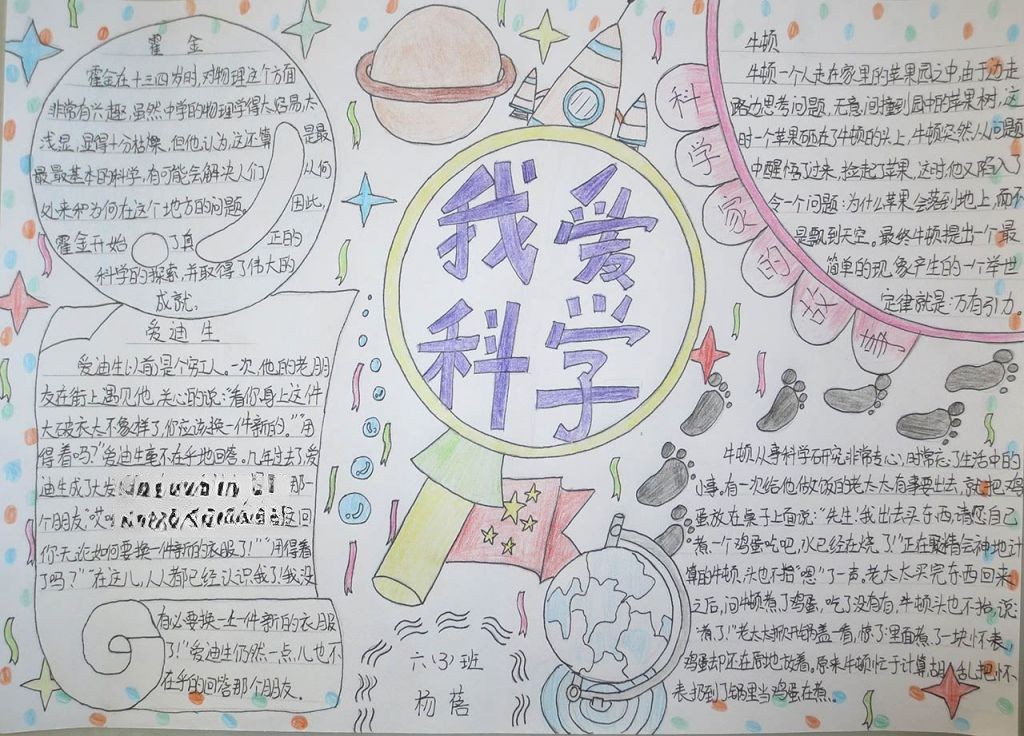 我爱
科学
霍金
霍金在十三四岁时,对物理这个方面
非常有兴趣,虽然中学的物理学得太容易太
浅显,显得十分枯燥,但他认为这还算是最
最最基本的科学,有可能会解决人们从何
处来和为何在这个地方的问题。因此,
霍金开始了真正的
科学的探索,并取得了伟大的
成就。
爱迪生
爱迪生以前是个穷工人。一次,他的老朋
友在街上遇见他,关心的说:“看你身上这件
大破衣太不象样了,你应该换一件新的。”“用
得着吗?”爱迪生毫不在乎地回答。几年过去了,爱
迪生成了大发 那一
个朋友“哎呀 这回
你无论如何要换一件新的衣服了!”“用得着
了吗?”在这儿,人人都已经认识我了!我没
有必要换上一件新的衣服
了!”爱迪生仍然一点儿也不
在乎的回答那个朋友。
科学家的故事
牛顿
牛顿一个人走在家里的苹果园之中,由于边走
路边思考问题,无意间撞到园中的苹果树,这
时一个苹果砸在了牛顿的头上,牛顿突然从问题
中醒悟了过来,捡起了苹果,这时,他又陷入了
令一个问题:为什么苹果会落到地上,而不
是飘到天空。最终牛顿提出一个最
简单的现象产生的一个举世
定律就是:万有引力。
牛顿从事科学研究非常专心,时常忘了生活中的
小事。有一次给他做饭的老太太有事要出去,就把鸡
蛋放在桌子上面说:“先生!我出去买东西,请您自己
煮一个鸡蛋吃吧,水已经在烧了!”正在聚精会神地计
算的牛顿,头也不抬“嗯”了一声。老太太买完东西回来
之后,问牛顿煮了鸡蛋,吃了没有有,牛顿头也不抬,说:
“煮了!”老太太掀开锅盖一看,惊了:里面煮了一块怀表,
鸡蛋却还在原地放着。原来牛顿忙于计算,胡乱把怀
表扔到了锅里当鸡蛋在煮。
六(3)班
杨蓓